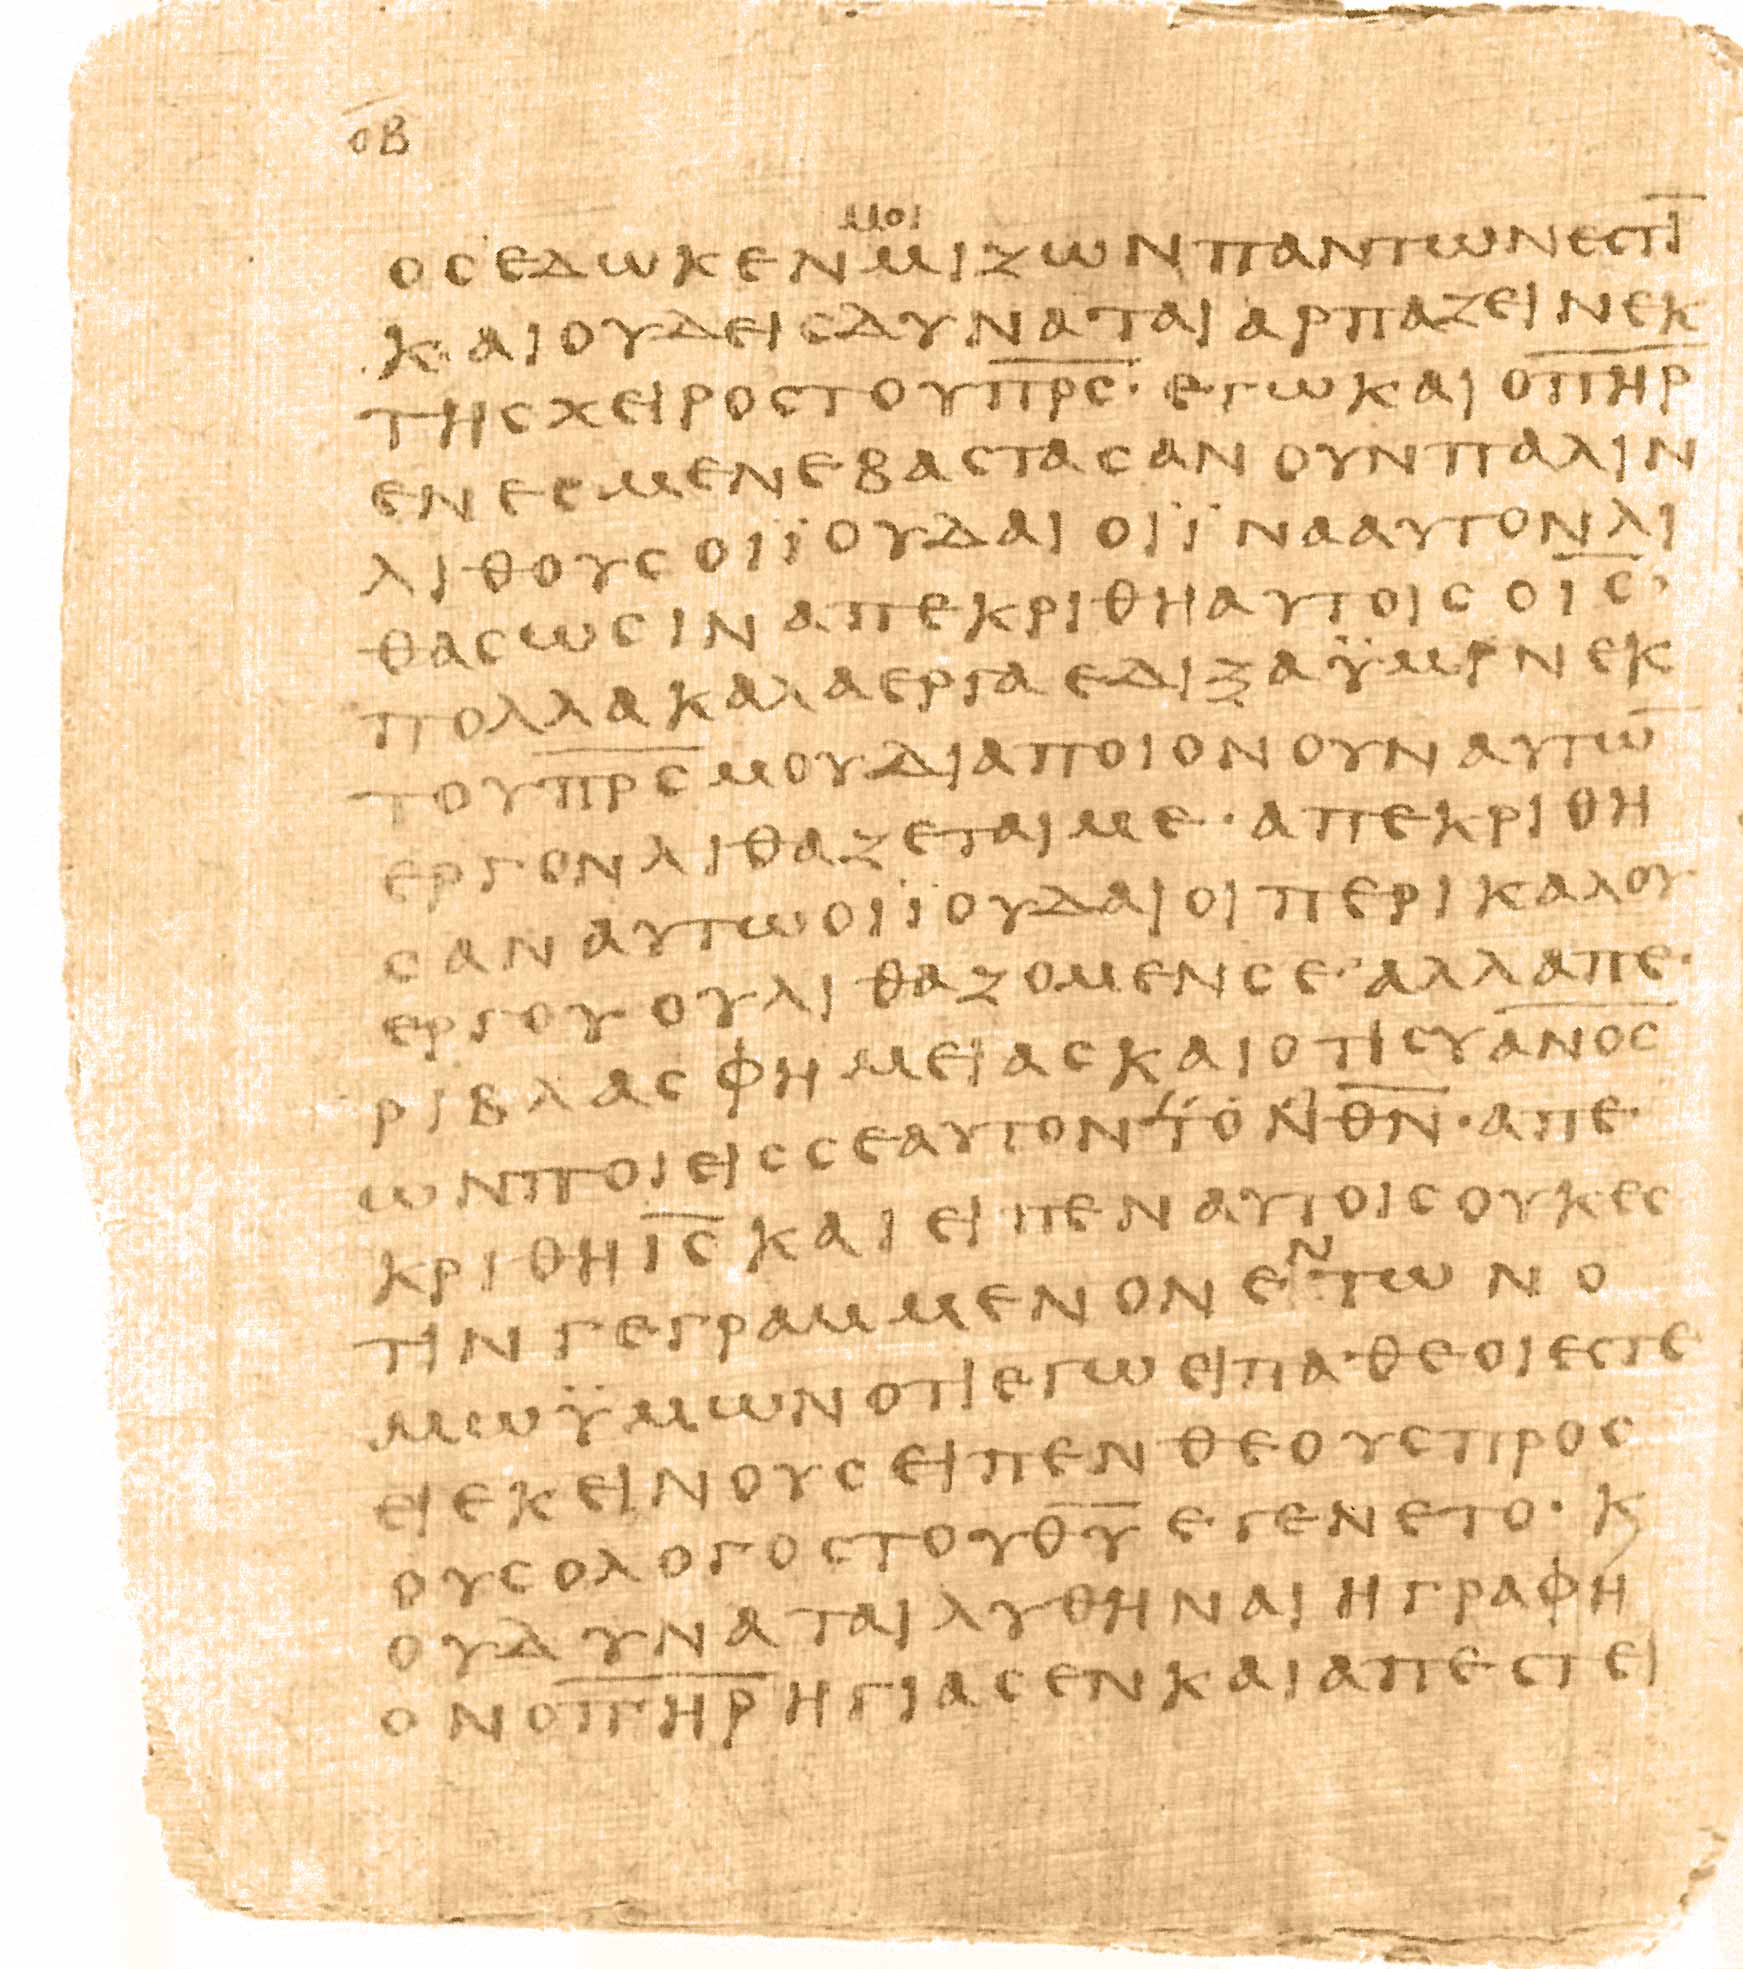 ΟΒ
ΜΟΙ
ΟϹΕΔΩΚΕΝΜΙΖΩΝΠΑΝΤΩΝΕϹΤΙ̅
ΚΑΙΟΥΔΕΙϹΔΥΝΑΤΑΙΑΡΠΑΖΕΙΝΕΚ
ΤΗϹΧΕΙΡΟϹΤΟΥΠ̅Ρ̅Ϲ̅·ΕΓΩΚΑΙΟΠ̅Η̅Ρ̅
ΕΝΕϹΜΕΝΕΒΑϹΤΑϹΑΝΟΥΝΠΑΛΙΝ
ΛΙΘΟΥϹΟΙΪΟΥΔΑΙΟΙΪΝΑΑΥΤΟΝΛΙ
ΘΑϹΩϹΙΝΑΠΕΚΡΙΘΗΑΥΤΟΙϹΟΙ̅Ϲ̅·
ΠΟΛΛΑΚΑΛΑΕΡΓΑΕΔΙΞΑΫΜΙΝΕΚ
ΤΟΥΠ̅Ρ̅Ϲ̅ΜΟΥΔΙΑΠΟΙΟΝΟΥΝΑΥΤΩ̅
ΕΡΓΟΝΛΙΘΑΖΕΤΑΙΜΕ·ΑΠΕΚΡΙΘΗ
ϹΑΝΑΥΤΩΟΙΪΟΥΔΑΙΟΙΠΕΡΙΚΑΛΟΥ
ΕΡΓΟΥΟΥΛΙΘΑΖΟΜΕΝϹΕ·ΑΛΛΑΠΕ
ΡΙΒΛΑϹΦΗΜΕΙΑϹΚΑΙΟΤΙϹΥΑ̅Ν̅Ο̅Ϲ̅
ΩΝΠΟΙΕΙϹϹΕΑΥΤΟΝΤΟΝΘ̅Ν̅·ΑΠΕ
ΚΡΙΘΗΙ̅Ϲ̅ΚΑΙΕΙΠΕΝΑΥΤΟΙϹΟΥΚΕϹ
ΤΙΝΓΕΓΡΑΜΜΕΝΟΝΕΝΤΩΝΟ
ΜΩΫΜΩΝΟΤΙΕΓΩΕΙΠΑ·ΘΕΟΙΕϹΤΕ
ΕΙΕΚΕΙΝΟΥϹΕΙΠΕΝΘΕΟΥϹΠΡΟϹ
ΟΥϹΟΛΟΓΟϹΤΟΥΘ̅Υ̅ΕΓΕΝΕΤΟ·Ϗ
ΟΥΔΥΝΑΤΑΙΛΥΘΗΝΑΙΗΓΡΑΦΗ
ΟΝΟΠ̅Η̅Ρ̅ΗΓΙΑϹΕΝΚΑΙΑΠΕϹΤΕΙ